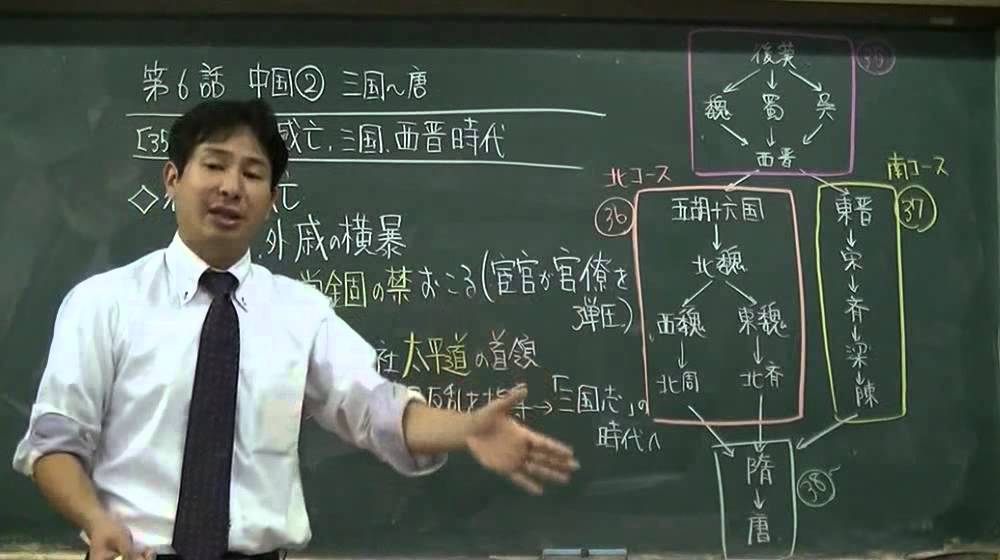 第6話 中国② 三国~唐
[35 滅亡,三国,西晋時代
◇ 亡
外戚の横暴
党錮の禁おこる(宦官が官僚を
弾圧)
社太平道の首領
反乱を指導→「三国志」の
時代へ
後漢 ㉟
魏 蜀 呉
西晋
北コース
㊱
五胡十六国
北魏
西魏 東魏
北周 北斉
南コース
㊲
東晋
宋
斉
梁
陳
隋
唐
㊳